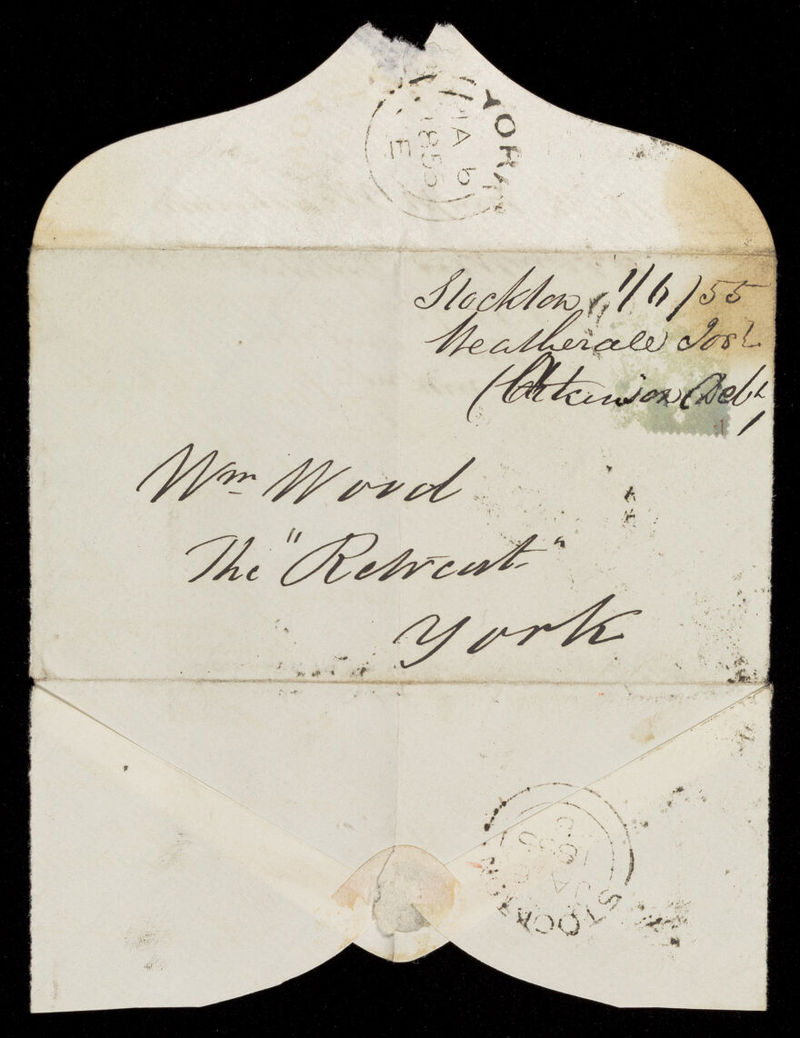 YORK
JA 6
1855
E
Stockton 1/6/55
Weatherald Josh
(Atkinson Debt
Wm Wood
The "Retreat"
York
STOCKTON
JA 6
1855